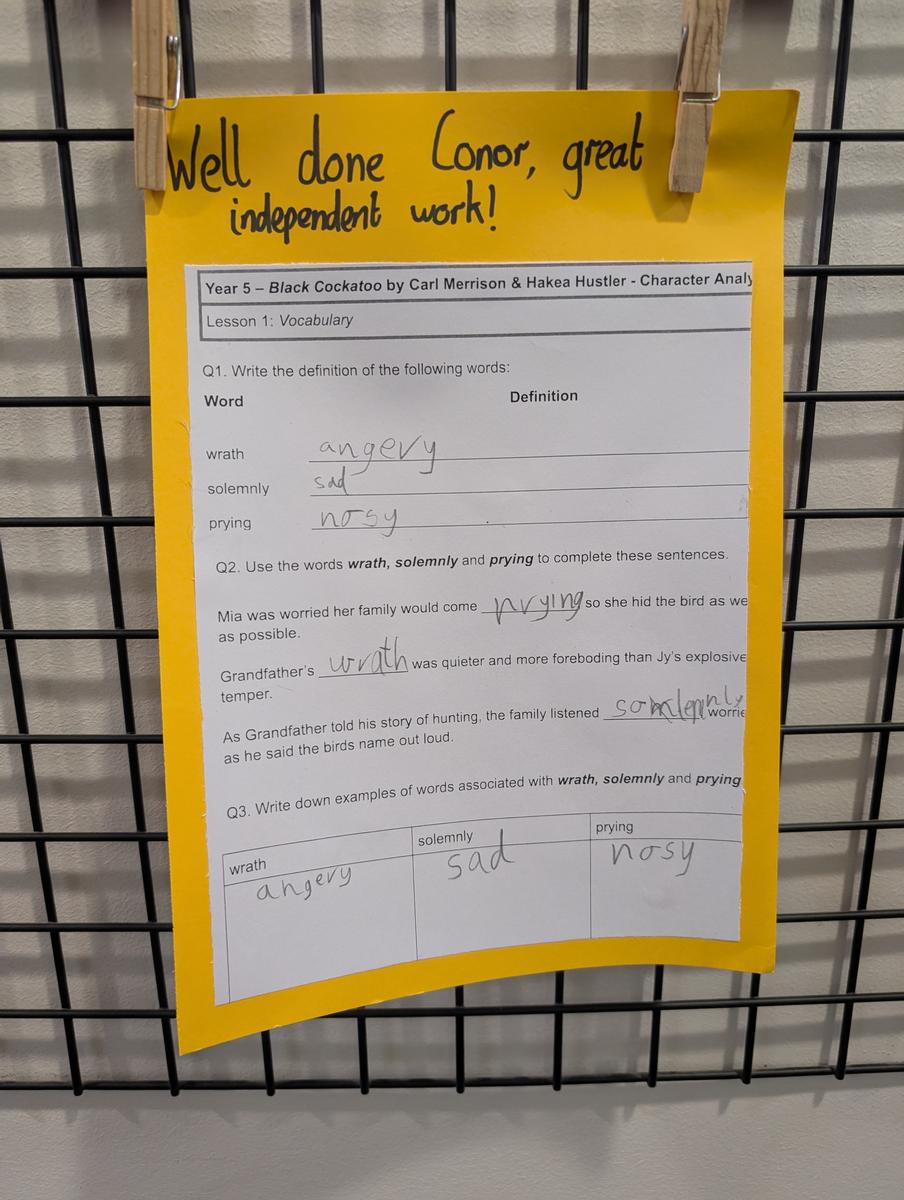 Well done Conor, great
independent work!
Year 5 – Black Cockatoo by Carl Merrison & Hakea Hustler - Character Analy
Lesson 1: Vocabulary
Q1. Write the definition of the following words:
Word Definition
wrath angery
solemnly sad
prying nosy
Q2. Use the words wrath, solemnly and prying to complete these sentences.
Mia was worried her family would come prying so she hid the bird as we
as possible.
Grandfather's wrath was quieter and more foreboding than Jy's explosive
temper.
As Grandfather told his story of hunting, the family listened worrie
as he said the birds name out loud.
Q3. Write down examples of words associated with wrath, solemnly and prying
wrath solemnly prying
angery sad nosy